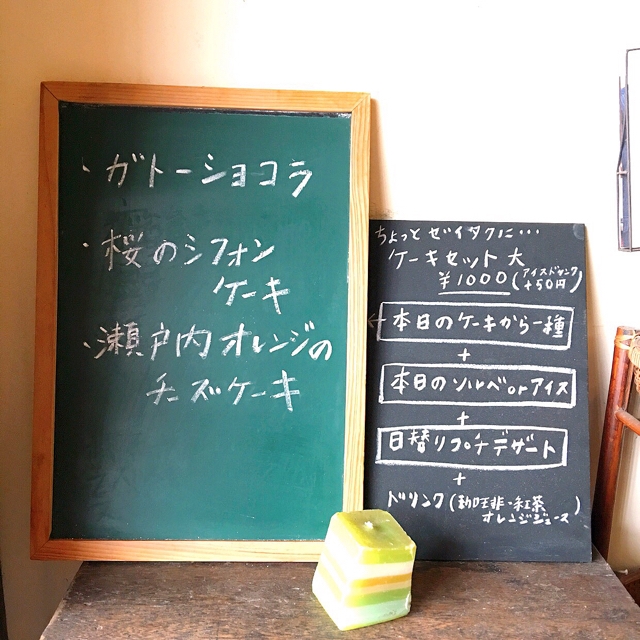 ・ガトーショコラ
・桜のシフォン
ケーキ
・瀬戸内オレンジの
チーズケーキ
ちょっとゼイタクに…
ケーキセット大
¥1000(アイスドリンク
+50円)
本日のケーキから一種
+
本日のソルベorアイス
+
日替りプチデザート
+
ドリンク(珈琲・紅茶
オレンジジュース)